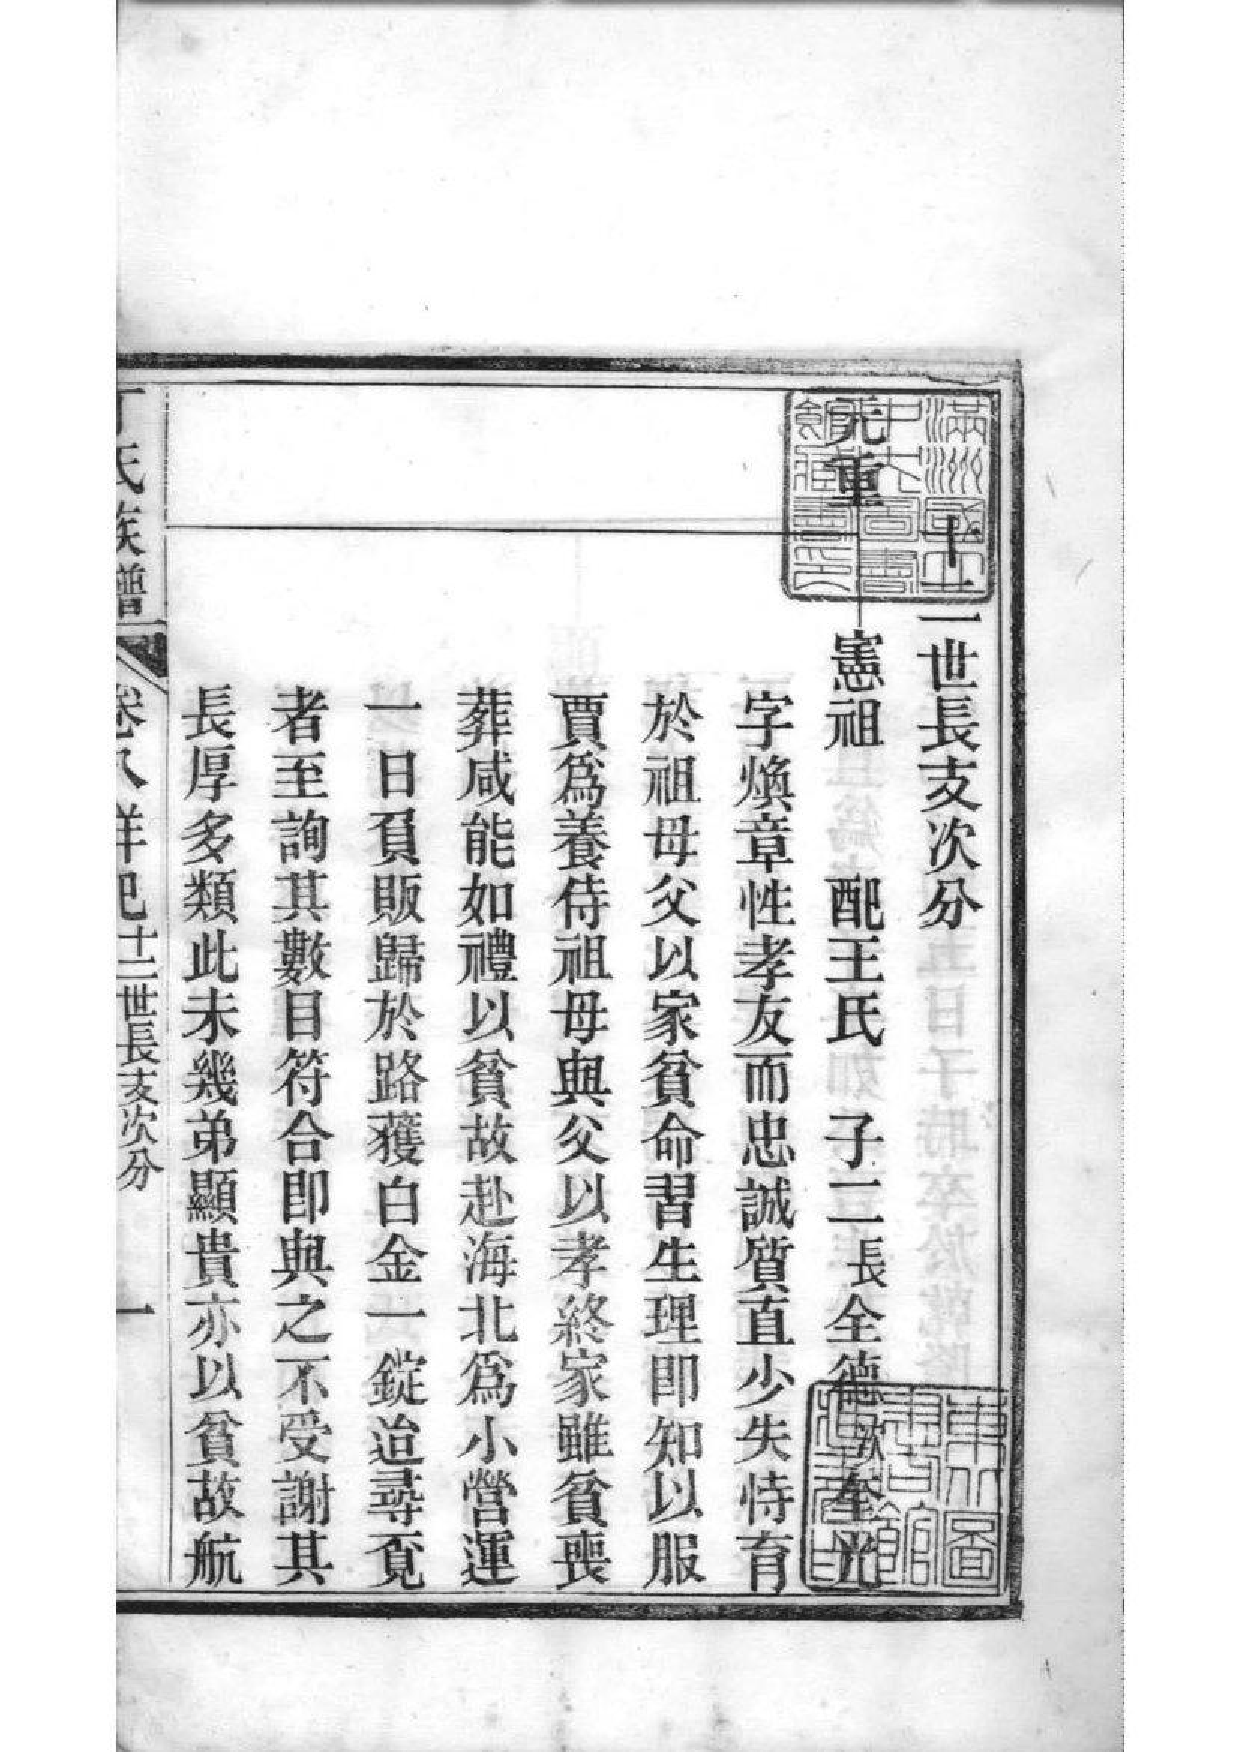 十二世長支次分
元重
憲祖 配王氏 子二長全德次全光
字煥章性孝友而忠誠質直少失恃育
於祖母父以家貧命習生理即知以服
賈爲養侍祖母與父以孝終家雖貧喪
葬咸能如禮以貧故赴海北爲小營運
一日負販歸於路獲白金一錠迨尋覓
者至詢其數目符合即與之不受謝其
長厚多類此未幾弟顯貴亦以貧故航
丁氏族譜 卷八詳記 十二世長支次分 一